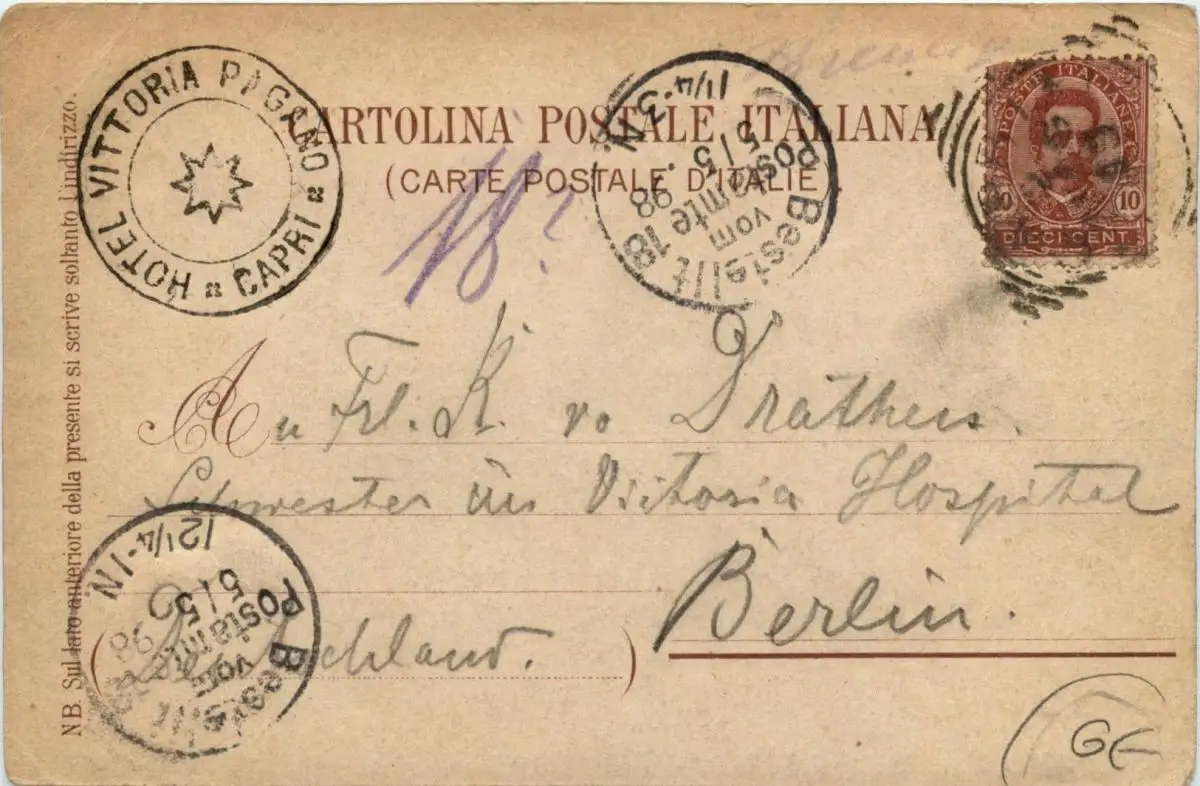 HOTEL VITTORIA PAGANO
CAPRI
CARTOLINA POSTALE ITALIANA
(CARTE POSTALE D'ITALIE)
POSTE ITALIANE
10
DIECI CENT
Bestellt
vom
Postamte 18
5/5
98
1¼-3N.
An Frl. K. v
Schwester im Victoria Hospital
Berlin.
(Deutschland.)
Bestellt
vom
Postamte
5/5
98
12¼-1N
NB. Sul lato anteriore della presente si scrive soltanto l'indirizzo.
GE